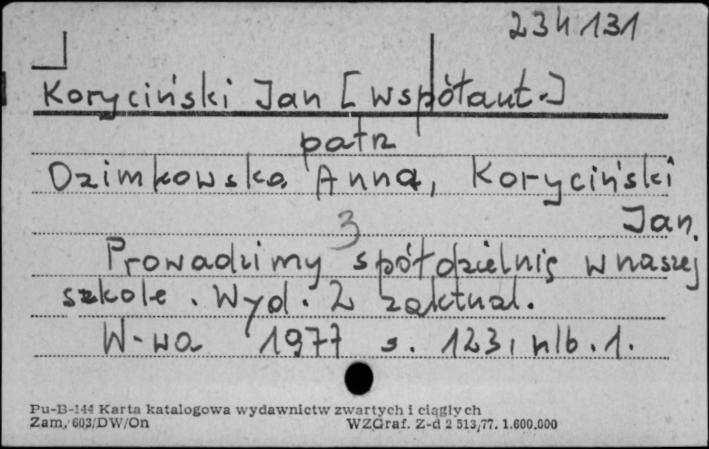 234131
Koryciński Jan [współaut.]
patrz
Dzimkowska Anna, Koryciński
Jan
3
Prowadzimy spółdzielnię w naszej
szkole. Wyd. 2 zaktual.
W-wa 1977 s. 123, nlb. 1.
Pu-B-144 Karta katalogowa wydawnictw zwartych i ciągłych
Zam. 603/DW/On WZGraf. Z-d 2 513/77. 1.600.000